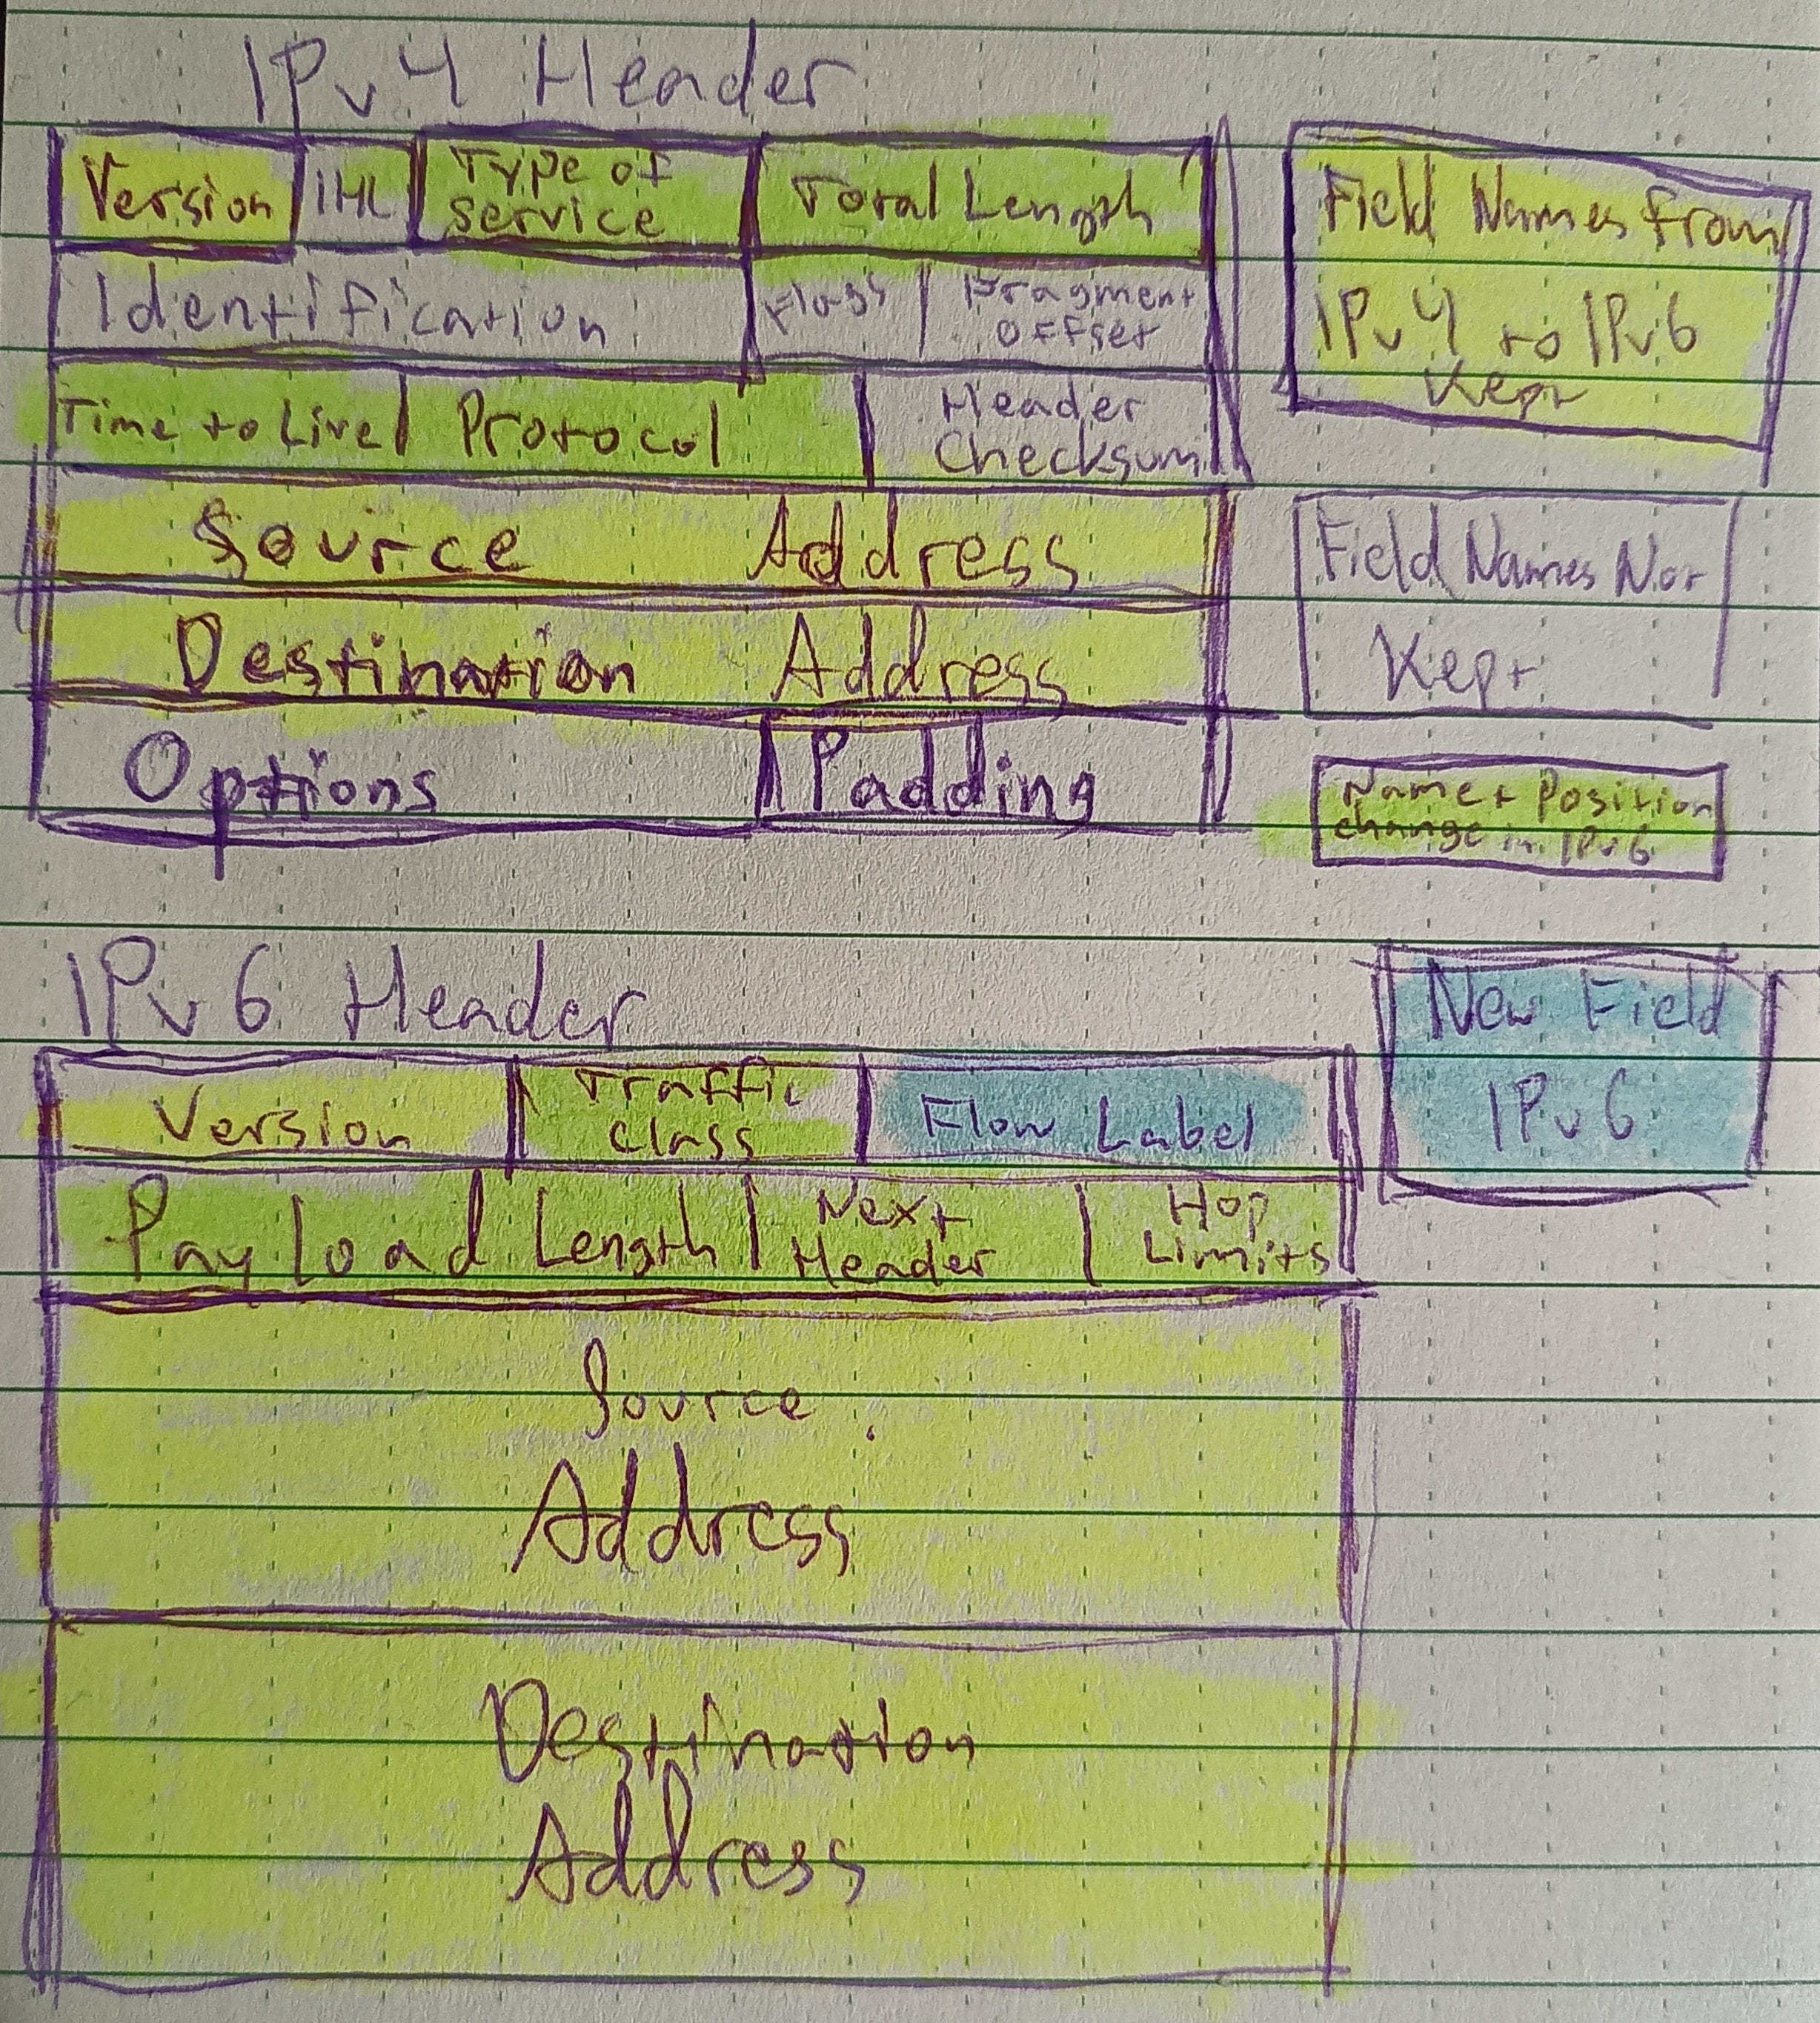 IPv4 Header
Version IHL Type of Total Length
service
Identification Flags Fragment
Offset
Time to Live Protocol Header
Checksum
Source Address
Destination Address
Options Padding
Field Names from
IPv4 to IPv6
Kept
Field Names Not
Kept
Name + Position
change in IPv6
IPv6 Header
Version Traffic Flow Label
Class
Payload Length Next Hop
Header Limits
Source
Address
Destination
Address
New Field
IPv6